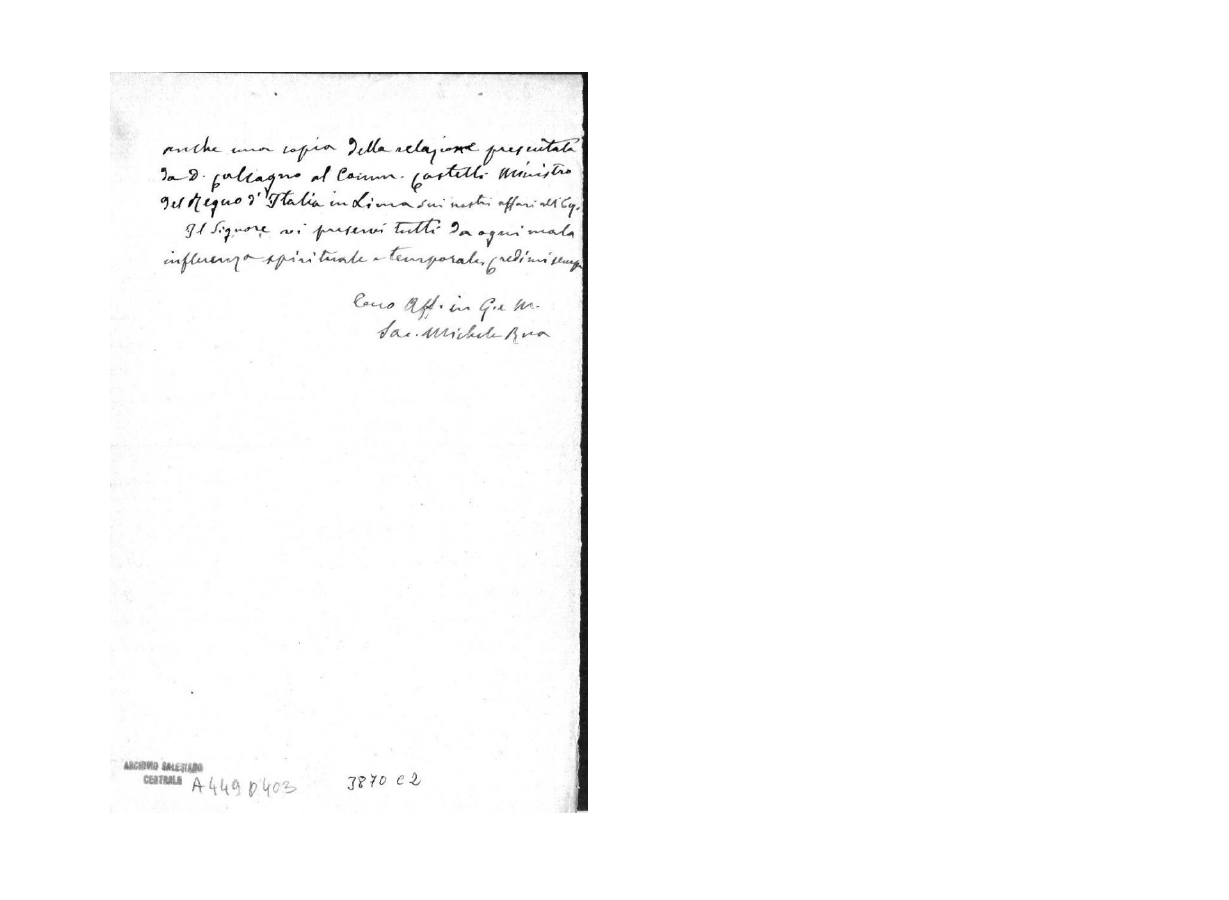 anche una copia della relazione presentata
da D. Calcagno al Comm. Castelli Ministro
del Regno d'Italia in Lima sui nostri affari all'Eq.
Il Signore vi preservi tutti da ogni mala
influenza spirituale e temporale. Credimi sempre
Aff. in G. e M.
Sac. Michele Rua
ARCHIVIO SALESIANO
CENTRALE A449D403 3870 C2